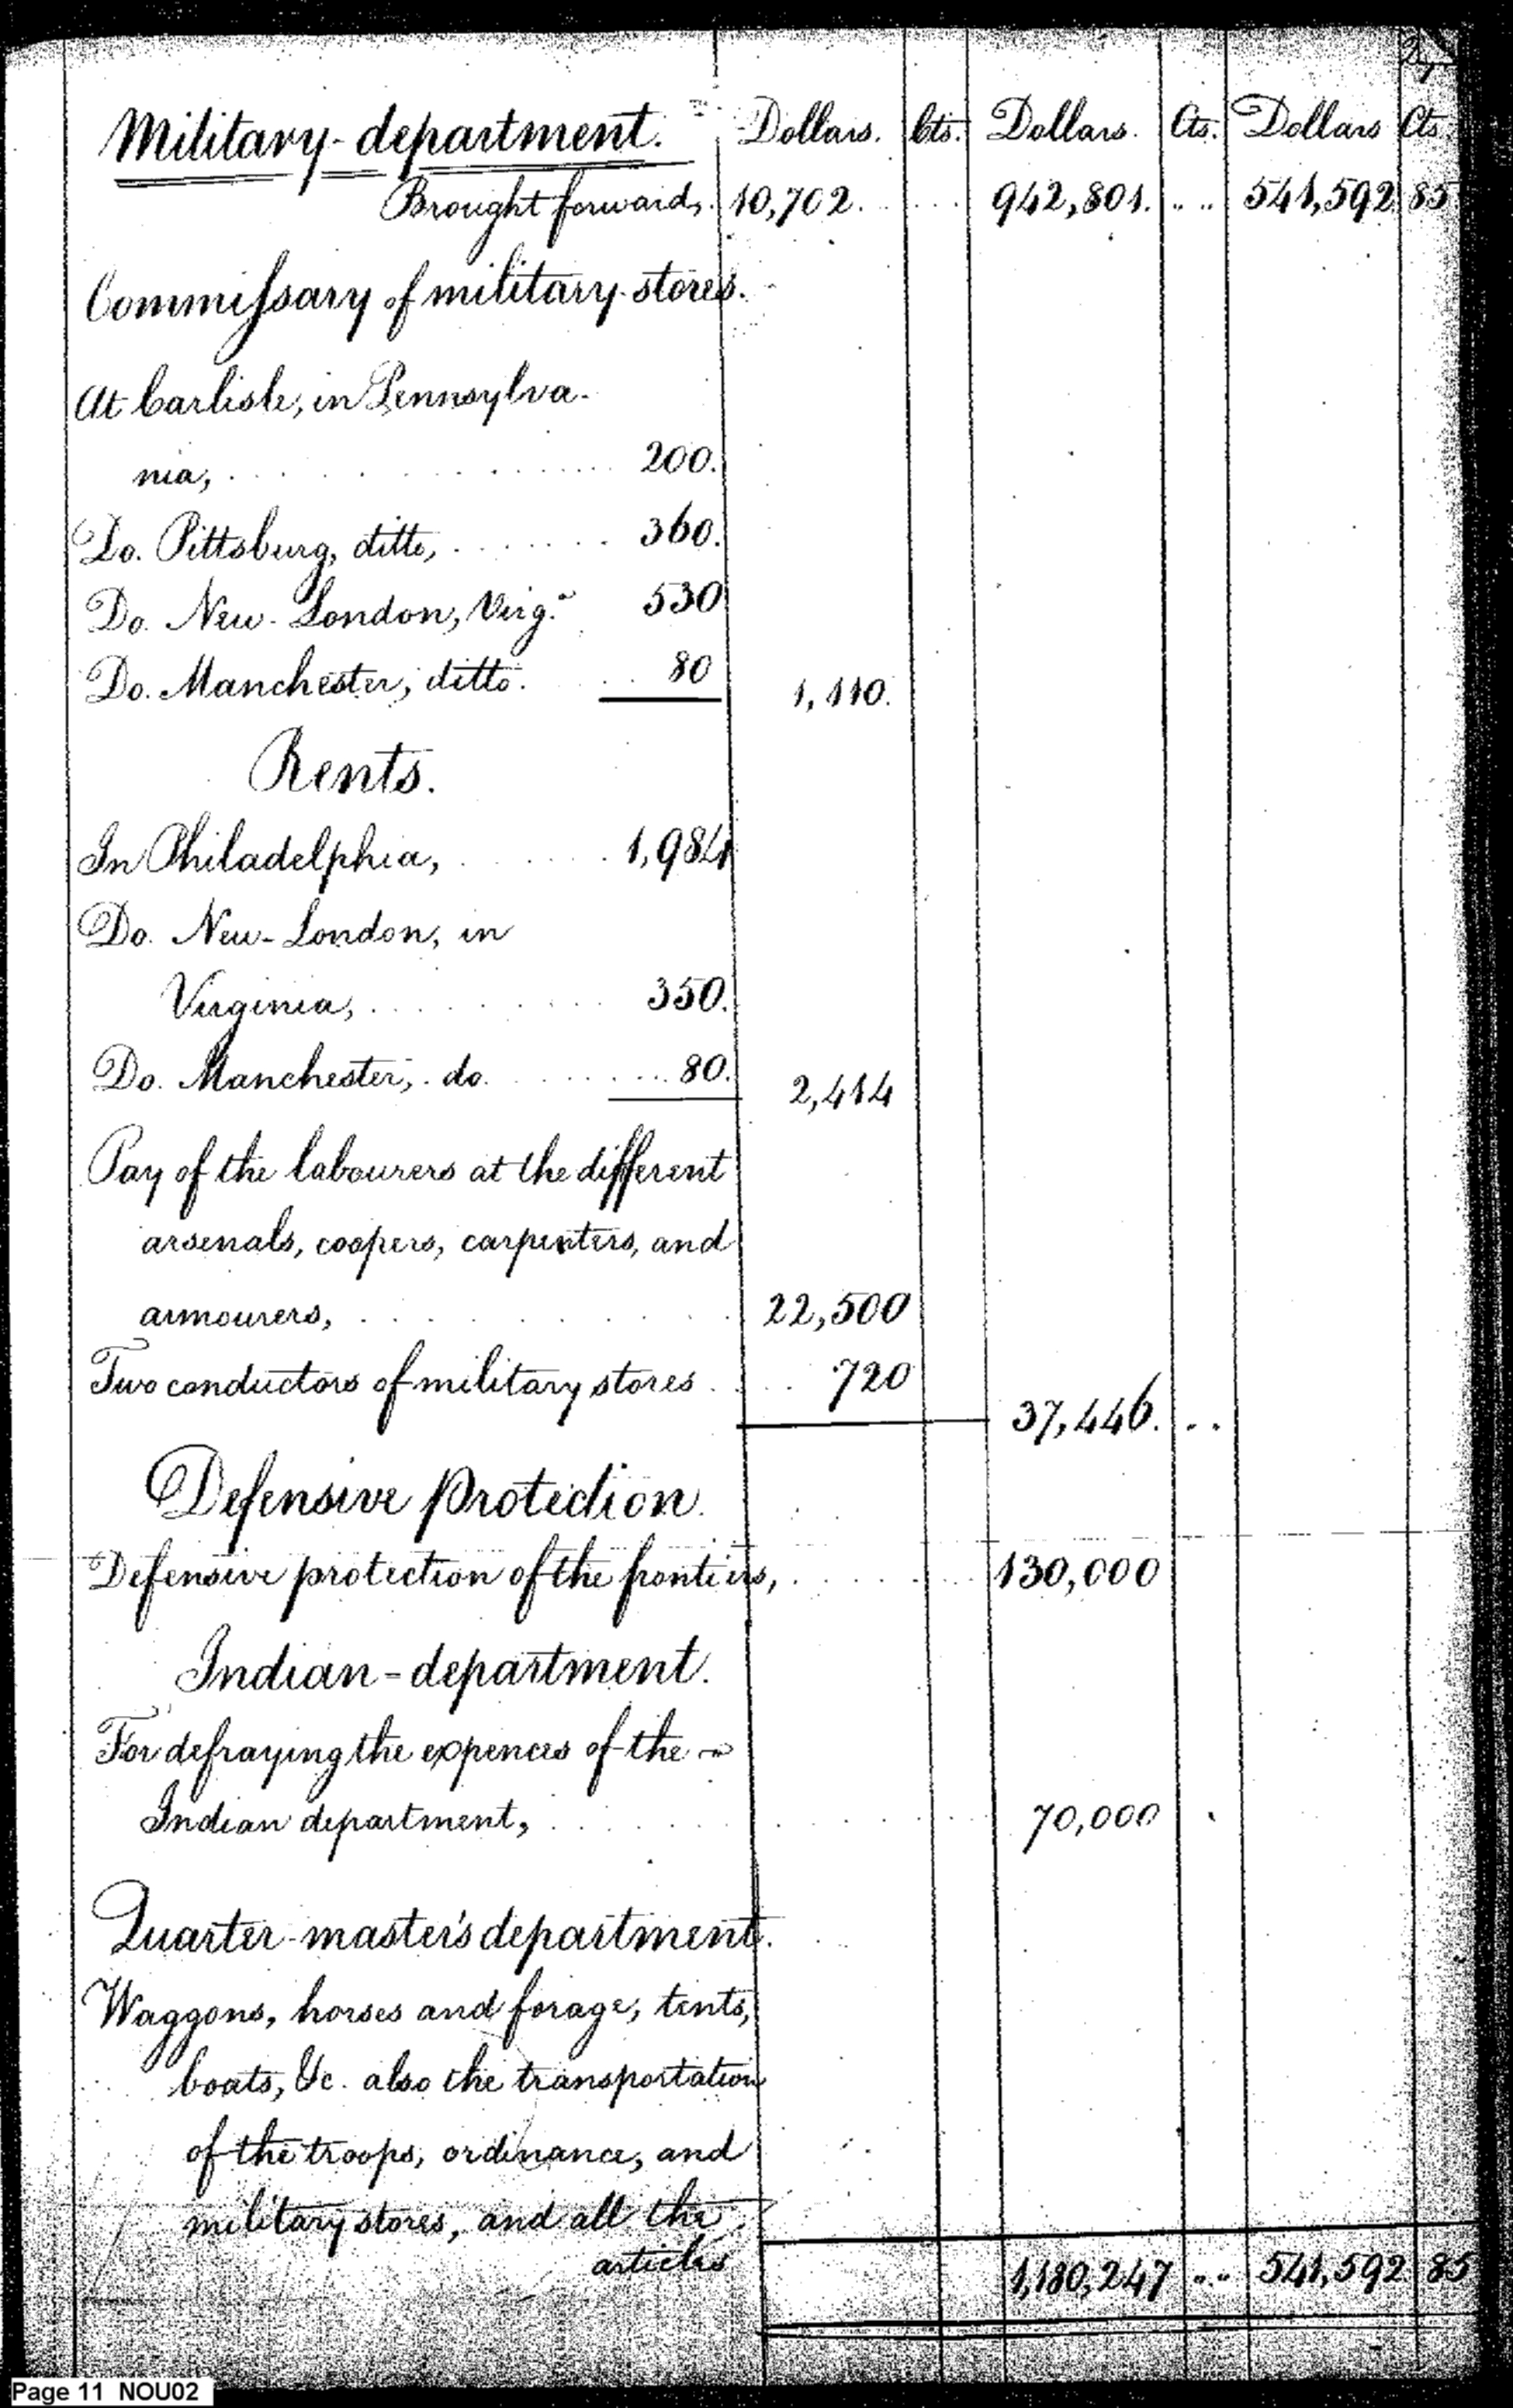 Military-department. Dollars. Cts. Dollars. Cts. Dollars Cts.
Brought forward, 10,702. .... 942,801. .. .. 541,592 85
Commissary of military stores.
At Carlisle, in Pennsylva-
nia, . . . . . . . . . 200.
Do. Pittsburg, ditto, . . . . . . . 360.
Do. New-London, Virg.ª 530
Do. Manchester, ditto. . . . 80 1,110.
Rents.
In Philadelphia, . . . . . . 1,984
Do. New-London, in
Virginia, . . . . . . . . 350.
Do. Manchester, do. . . . . . . . 80. 2,414
Pay of the labourers at the different
arsenals, coopers, carpenters, and
armourers, . . . . . . . . . 22,500
Two conductors of military stores . . . . 720 37,446. . .
Defensive protection.
Defensive protection of the frontiers, . . . . . . . 130,000
Indian-department.
For defraying the expences of the
Indian department, . . . . . . . . . . . 70,000
Quarter-master's department.
Waggons, horses and forage, tents,
boats, &c. also the transportation
of the troops, ordinance, and
military stores, and all the
articles
1,180,247 .. .. 541,592 85
Page 11 NOU02